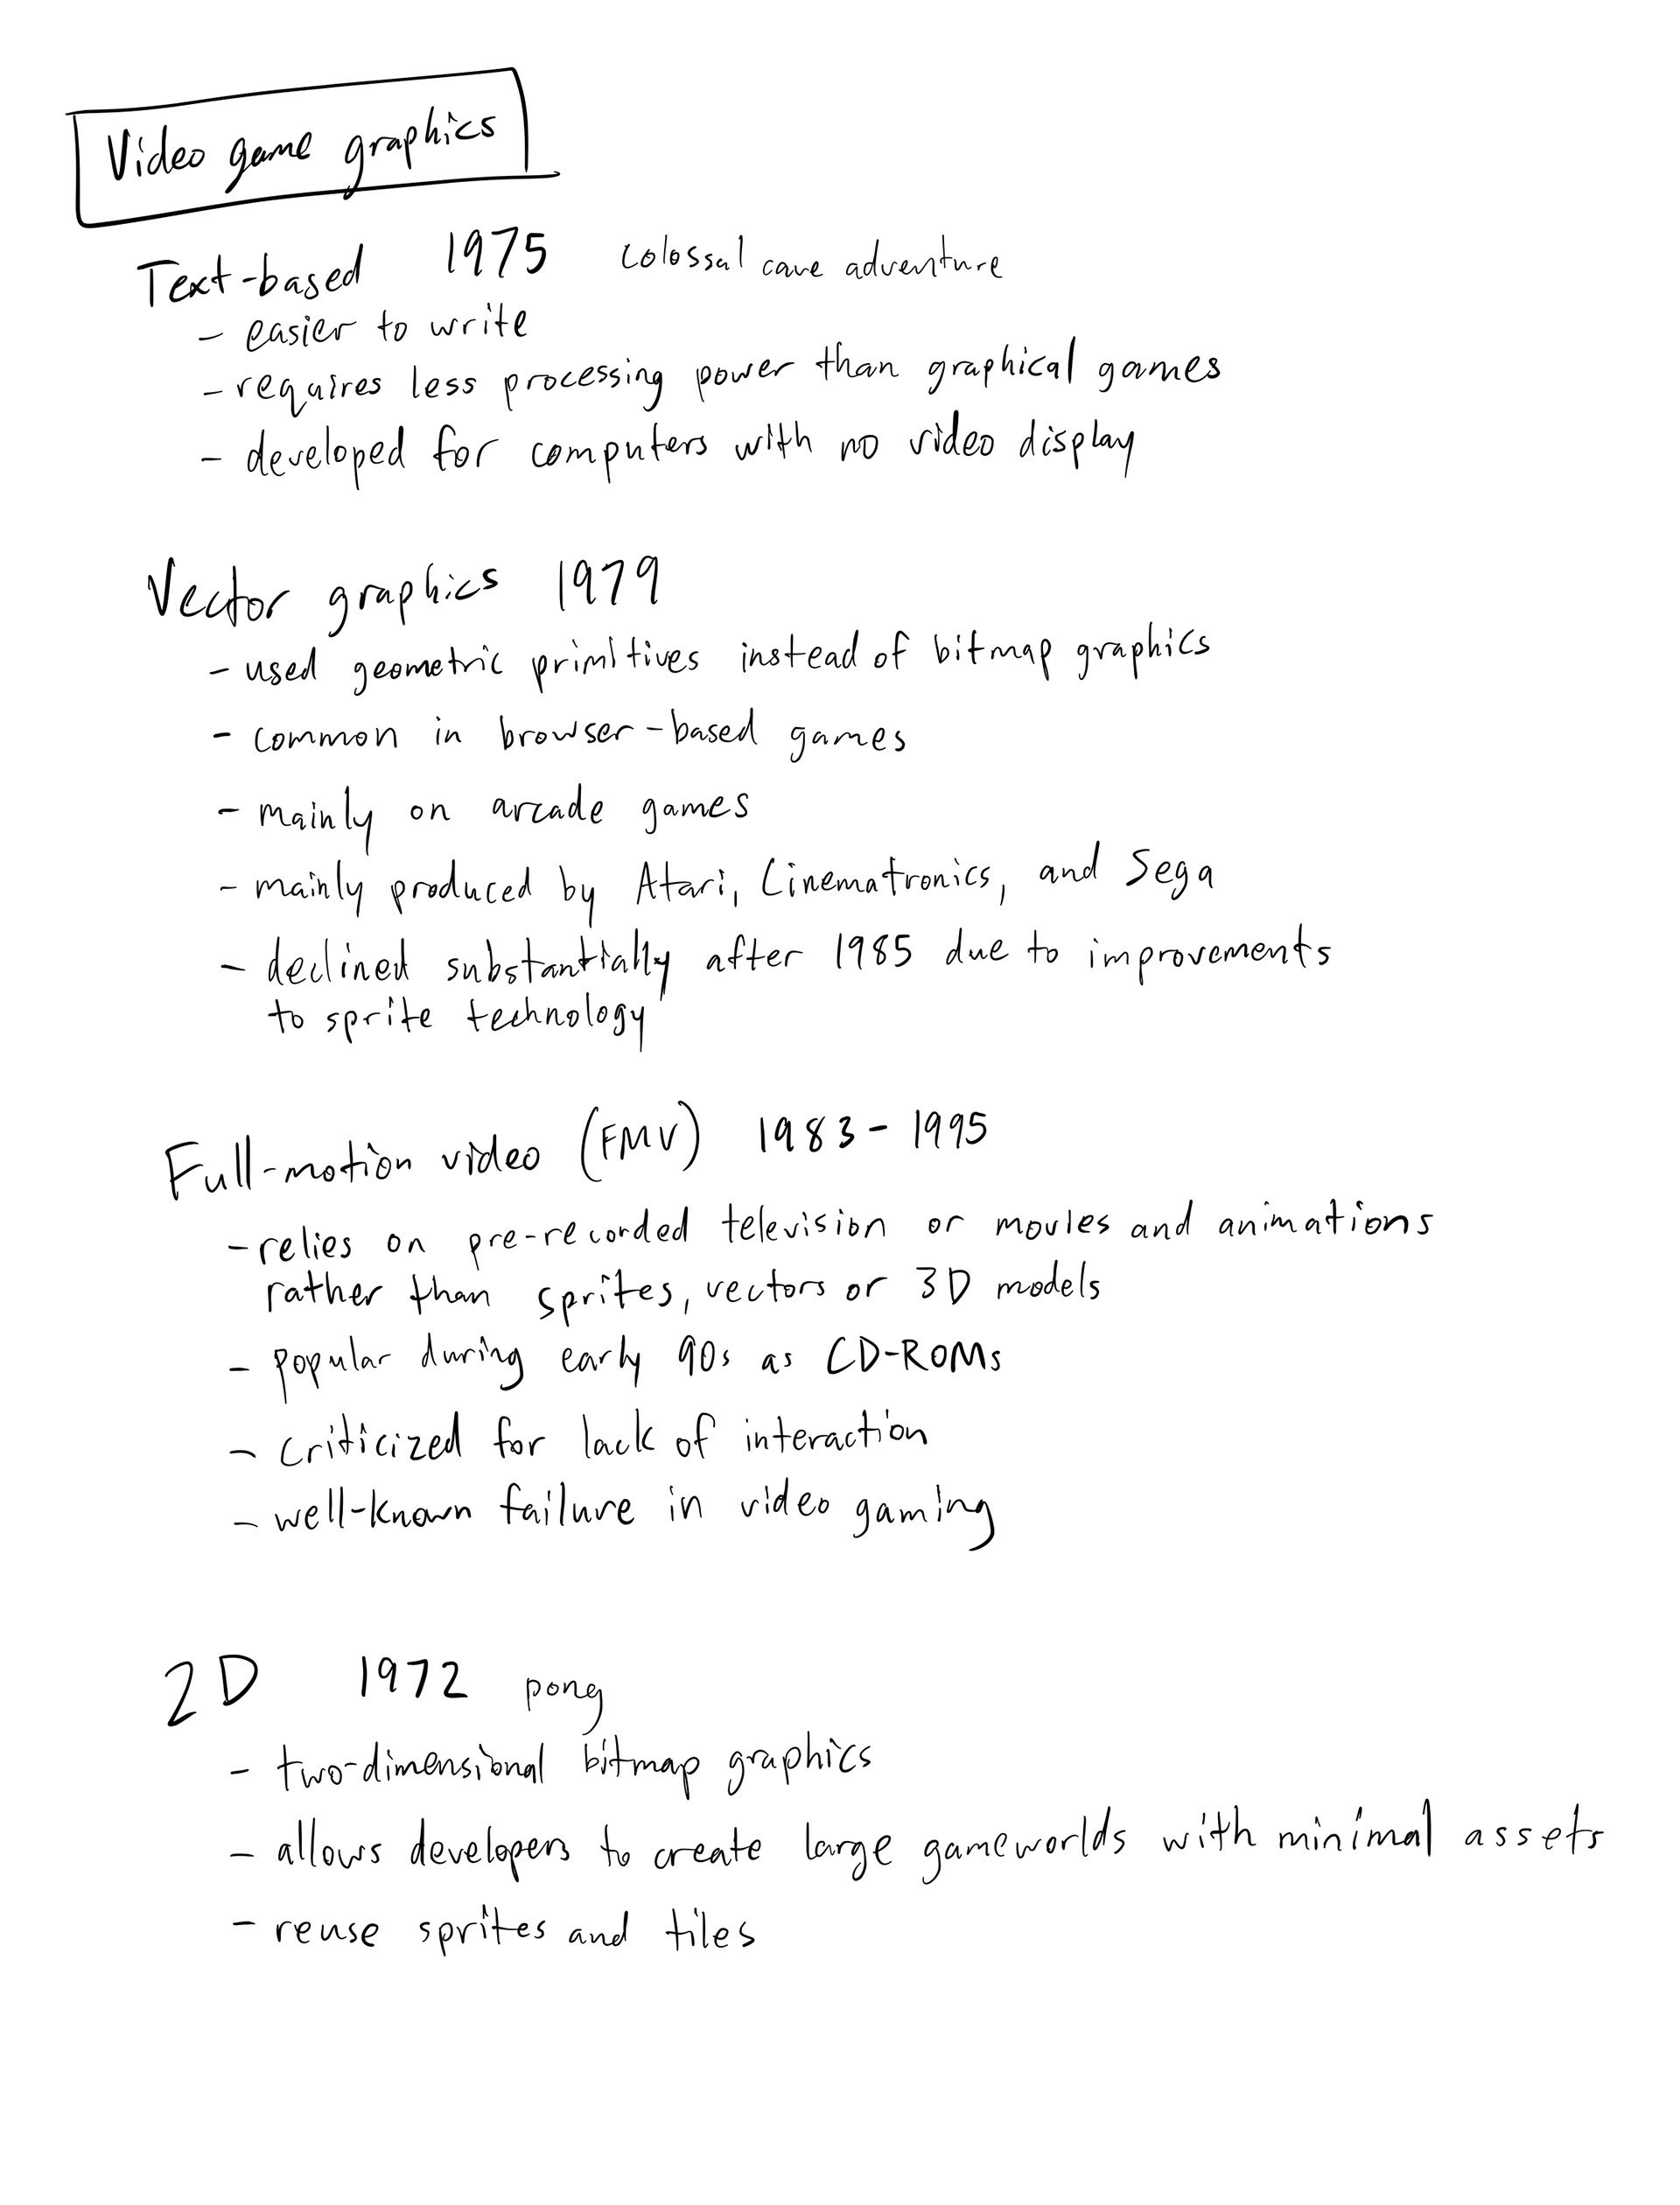 Video game graphics
Text-based 1975 Colossal cave adventure
- easier to write
- requires less processing power than graphical games
- developed for computers with no video display
Vector graphics 1979
- used geometric primitives instead of bitmap graphics
- common in browser-based games
- mainly on arcade games
- mainly produced by Atari, Cinematronics, and Sega
- declined substantially after 1985 due to improvements
to sprite technology
Full-motion video (FMV) 1983 - 1995
- relies on pre-recorded television or movies and animations
rather than sprites, vectors or 3D models
- popular during early 90s as CD-ROMs
- criticized for lack of interaction
- well-known failure in video gaming
2D 1972 pong
- two-dimensional bitmap graphics
- allows developers to create large gameworlds with minimal assets
- reuse sprites and tiles